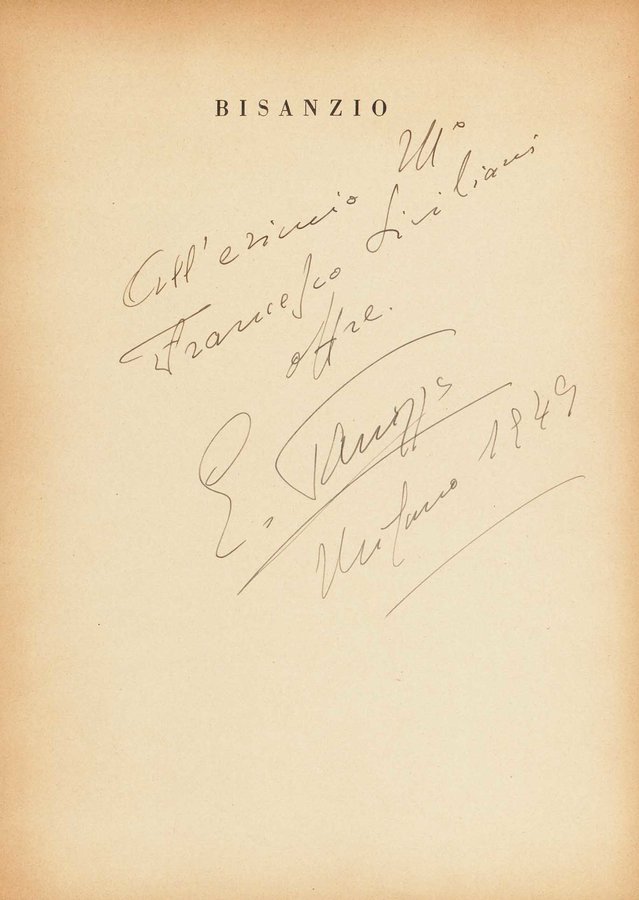 BISANZIO
All'eximio M°
Francesco Siciliani
offre.
E. Panizza
Milano 1949